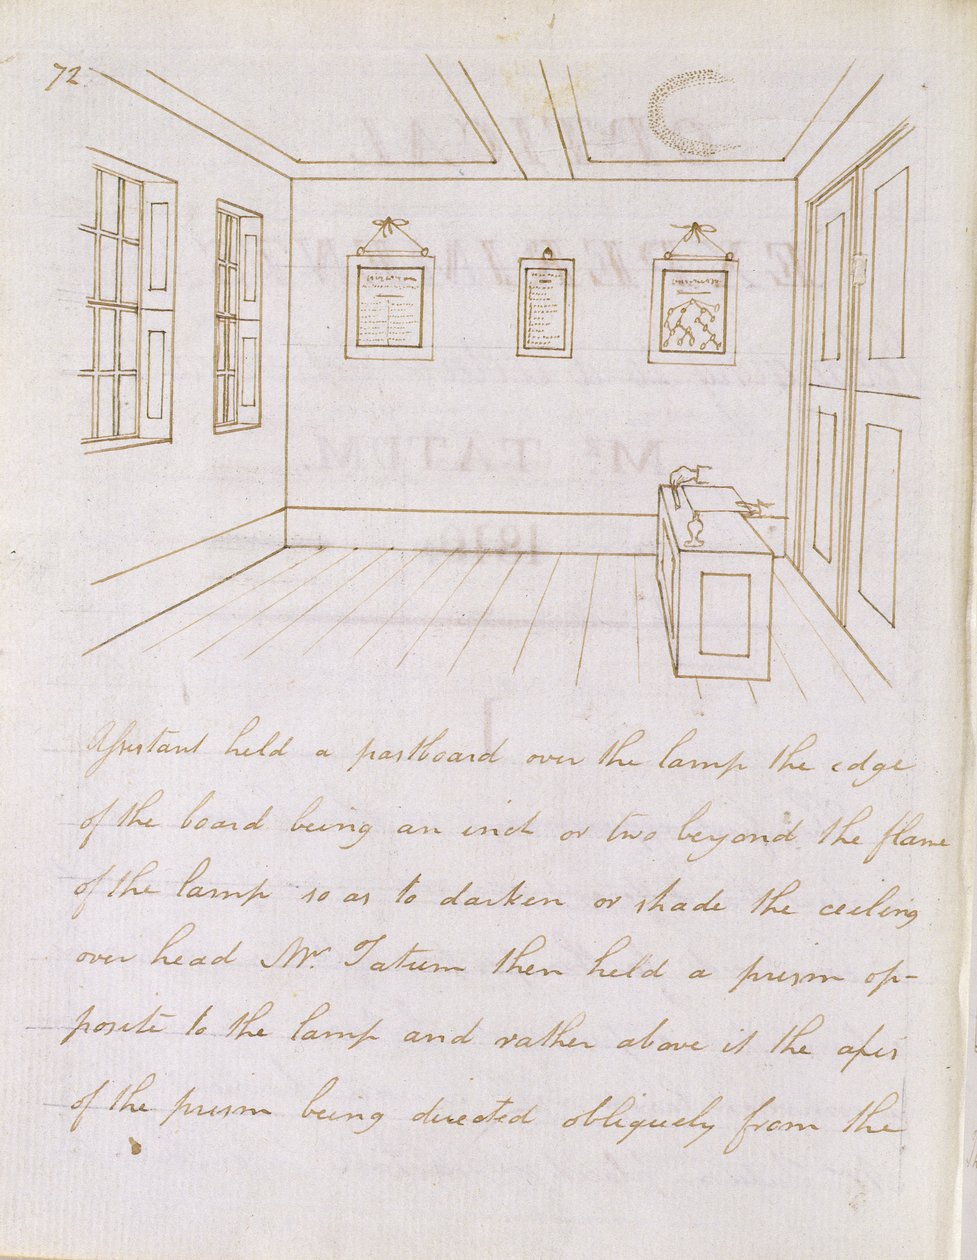 72
Assistant held a pastboard over the lamp the edge
of the board being an inch or two beyond the flame
of the lamp so as to darken or shade the ceeling
over head Mr. Tatum then held a prism op-
posite to the lamp and rather above it the apex
of the prism being directed obliquely from the
OPTICAL
EXPERIMENTS
Mr. TATUM.